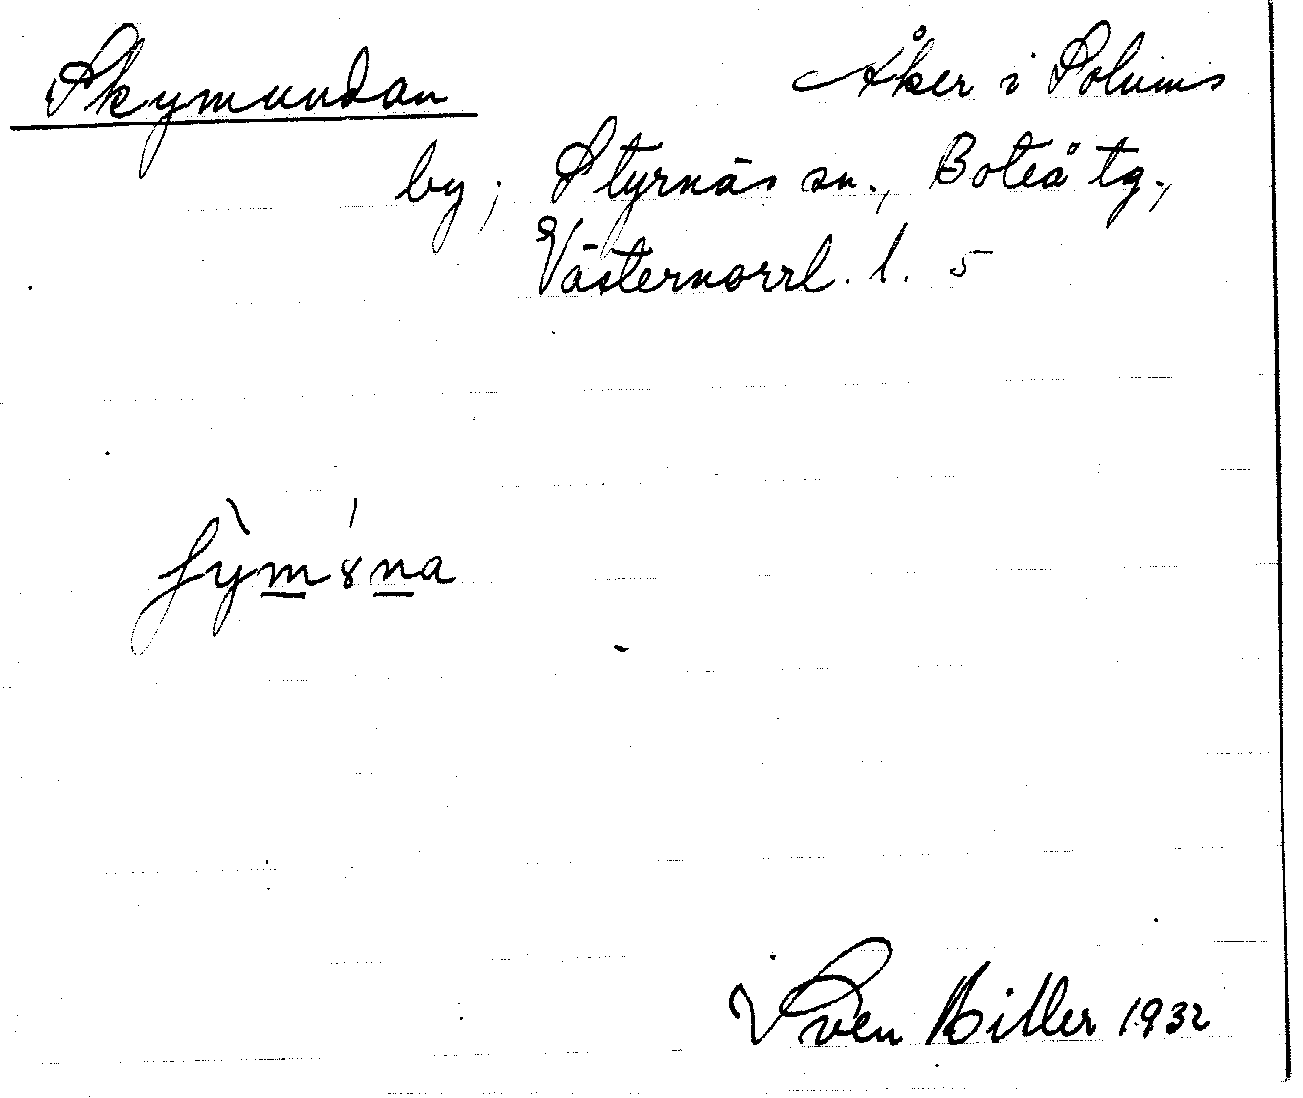 Skymundan Åker i Solums
by; Styrnäs sn., Boteå tg.,
Västernorrl. l. 5
Sven Biller 1932